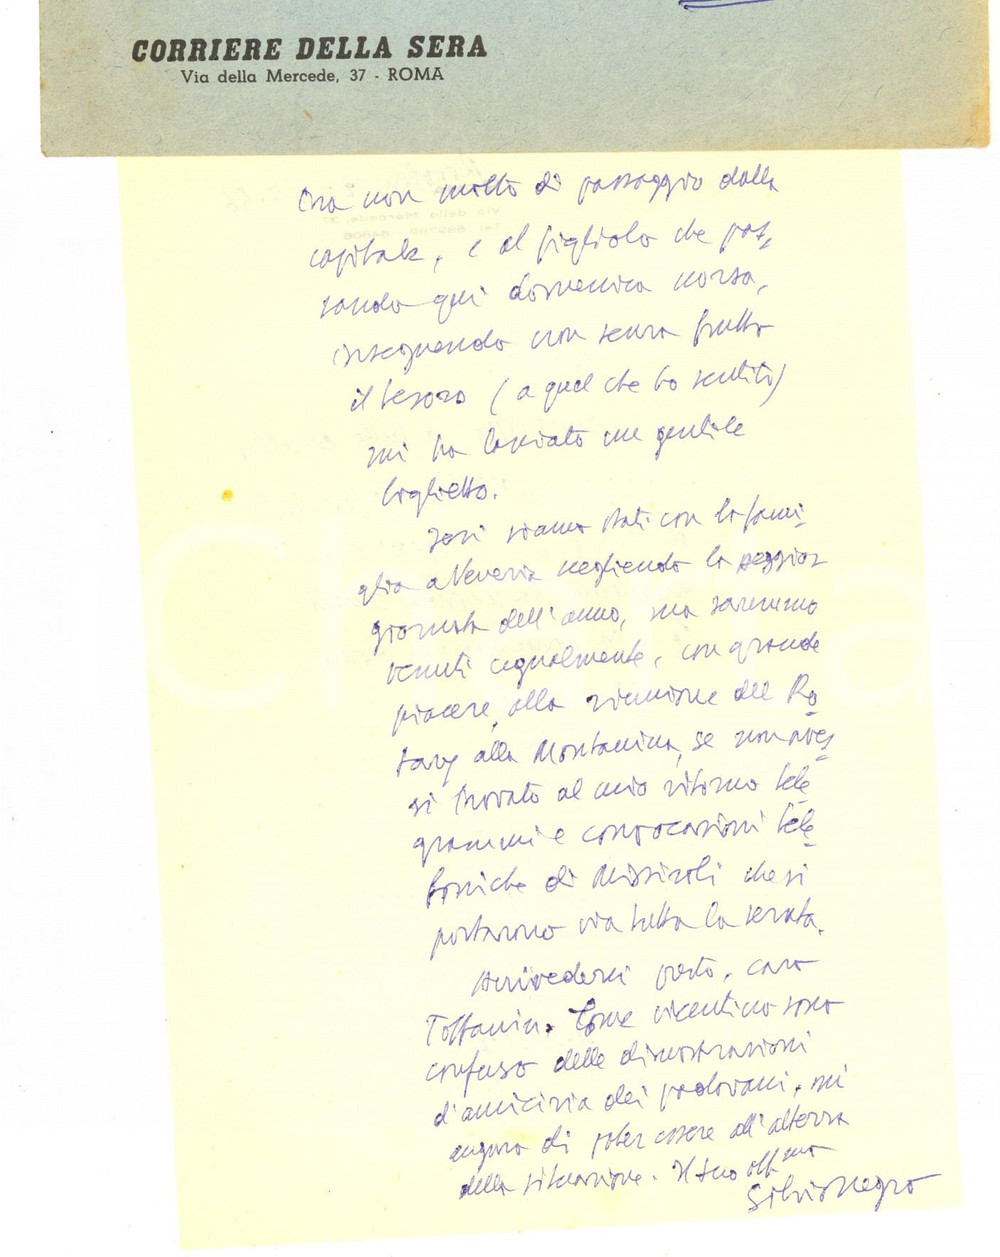 CORRIERE DELLA SERA
Via della Mercede, 37 - ROMA
ora non molto di passaggio dalla
capitale, e al figliolo che pas-
sando qui domenica scorsa,
inseguendo non senza frutto
il tesoro (a quel che ho sentito)
mi ha lasciato un gentile
biglietto.
Ieri siamo stati con la fami-
glia a Venezia scegliendo la peggior
giornata dell'anno, ma saremmo
venuti egualmente, con grande
piacere, alla riunione del Ro-
tary alla Montanina, se non aves-
si trovato al mio ritorno tele-
grammi e convocazioni tele-
foniche di Missiroli che si
portarono via tutta la serata.
Arrivederci presto, caro
Toffanin. Come vicentino sono
confuso delle dimostrazioni
d'amicizia dei padovani, mi
auguro di poter essere all'altezza
della situazione. Il tuo aff.mo
Silvio Negro